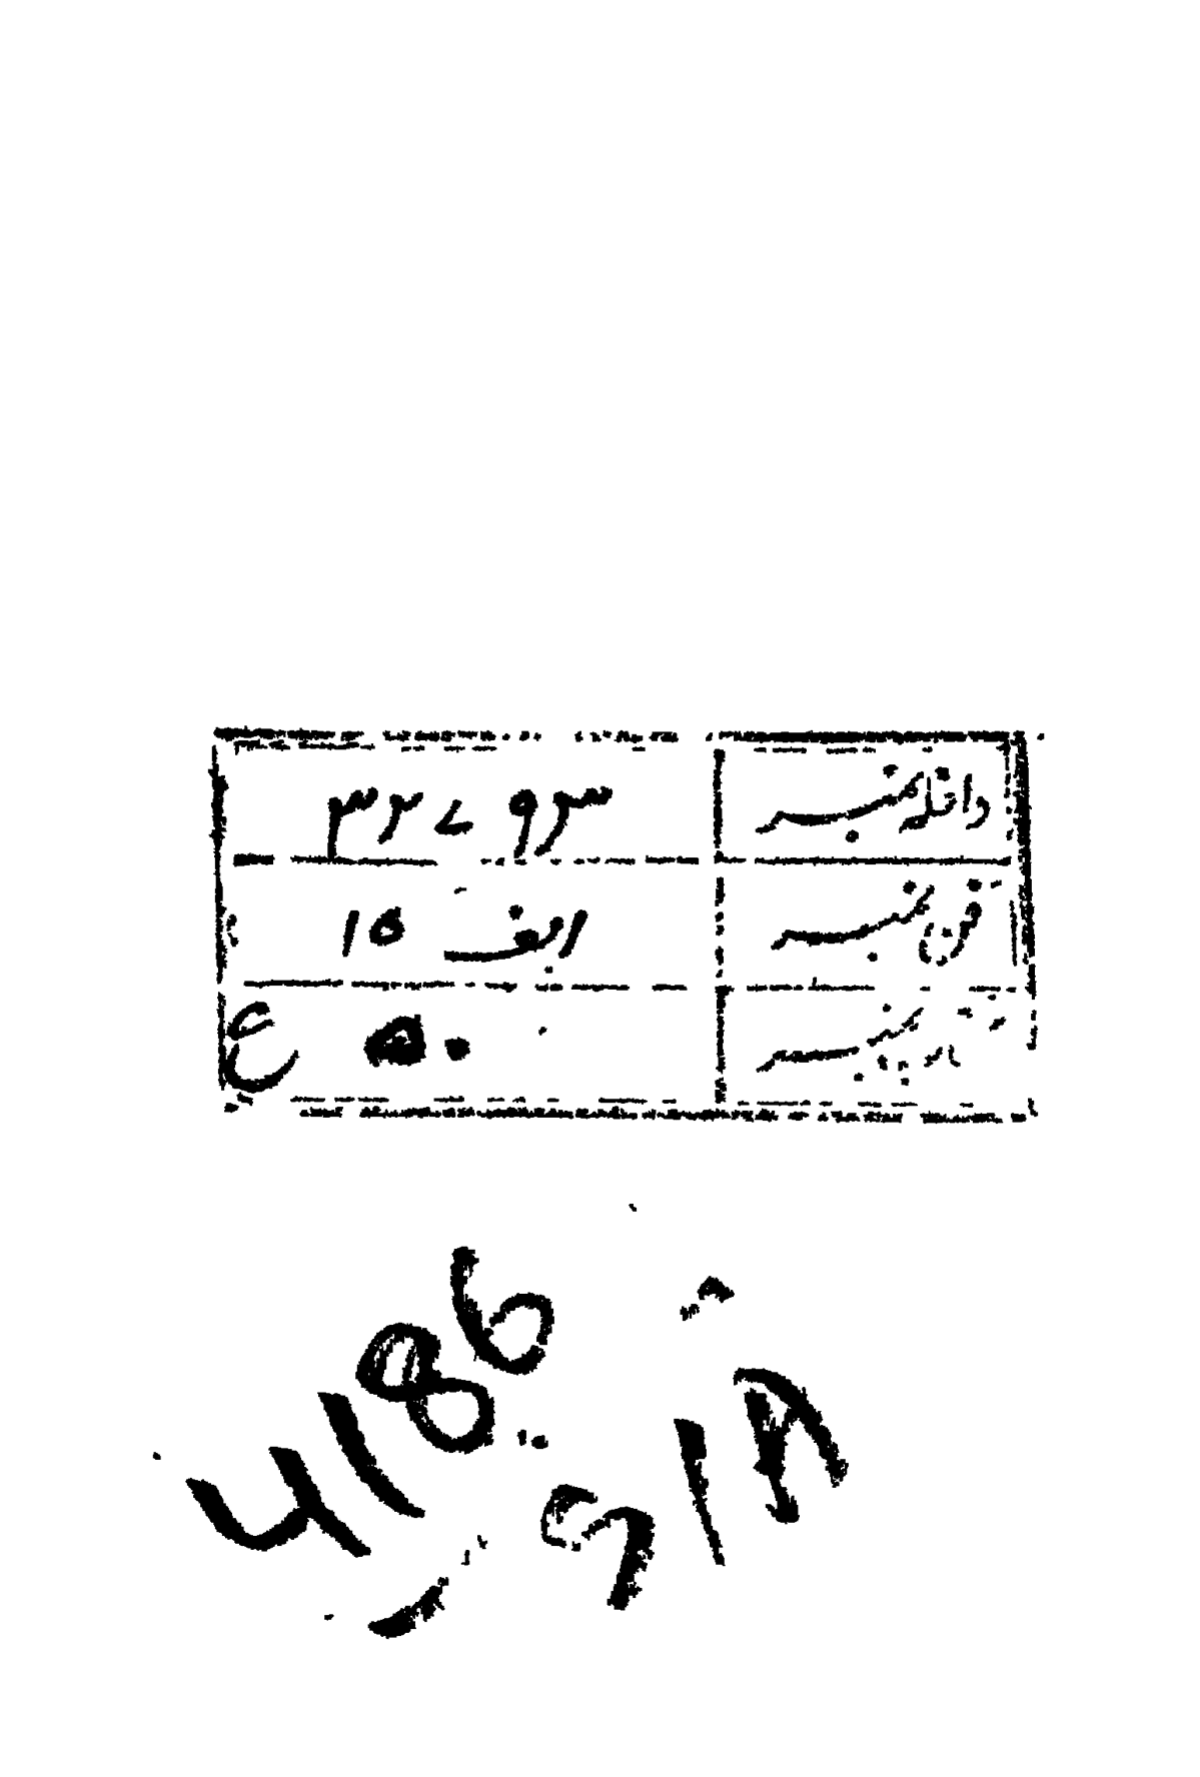 داخلہ نمبر ۳۲۷۹۳
فن نمبر الف ۱۵
نمبر ۵۰ ع
4186